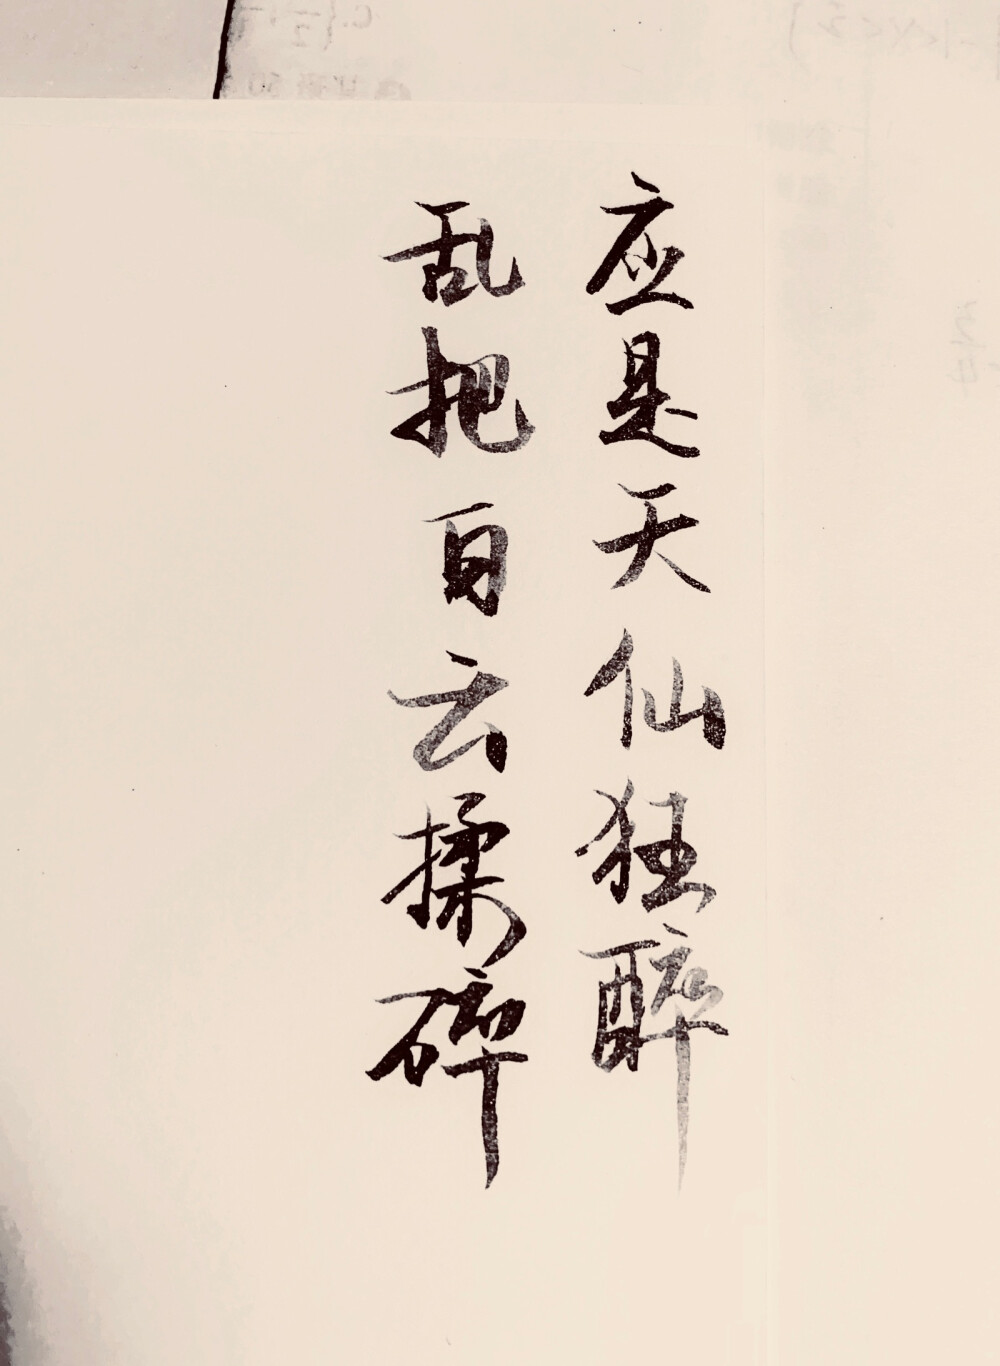 应是天仙狂醉
乱把白云揉碎